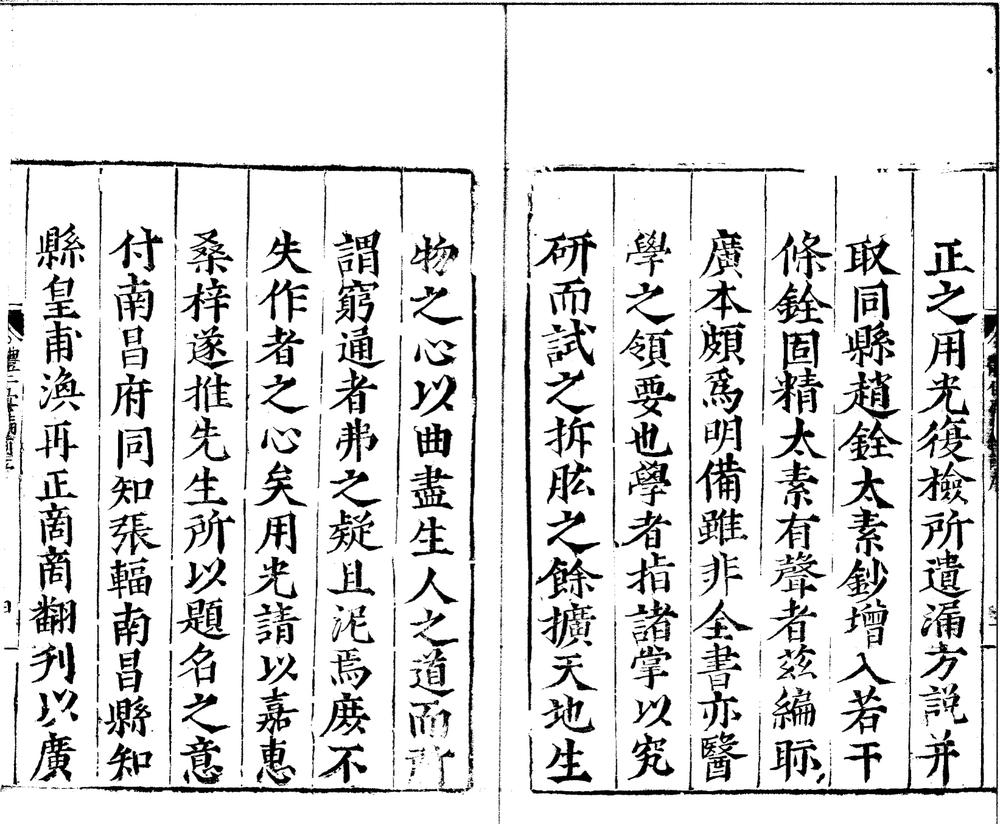 正之用光復檢所遺漏方説并
取同縣趙銓太素鈔增入若干
條銓固精太素有聲者茲編眎
廣本頗爲明備雖非全書亦醫
學之領要也學者指諸掌以究
研而試之拆肱之餘擴天地生
物之心以曲盡生人之道而所
謂窮通者弗之疑且泥焉庶不
失作者之心矣用光請以嘉惠
桑梓遂推先生所以題名之意
付南昌府同知張輻南昌縣知
縣皇甫渙再正啇啇翻刋以廣